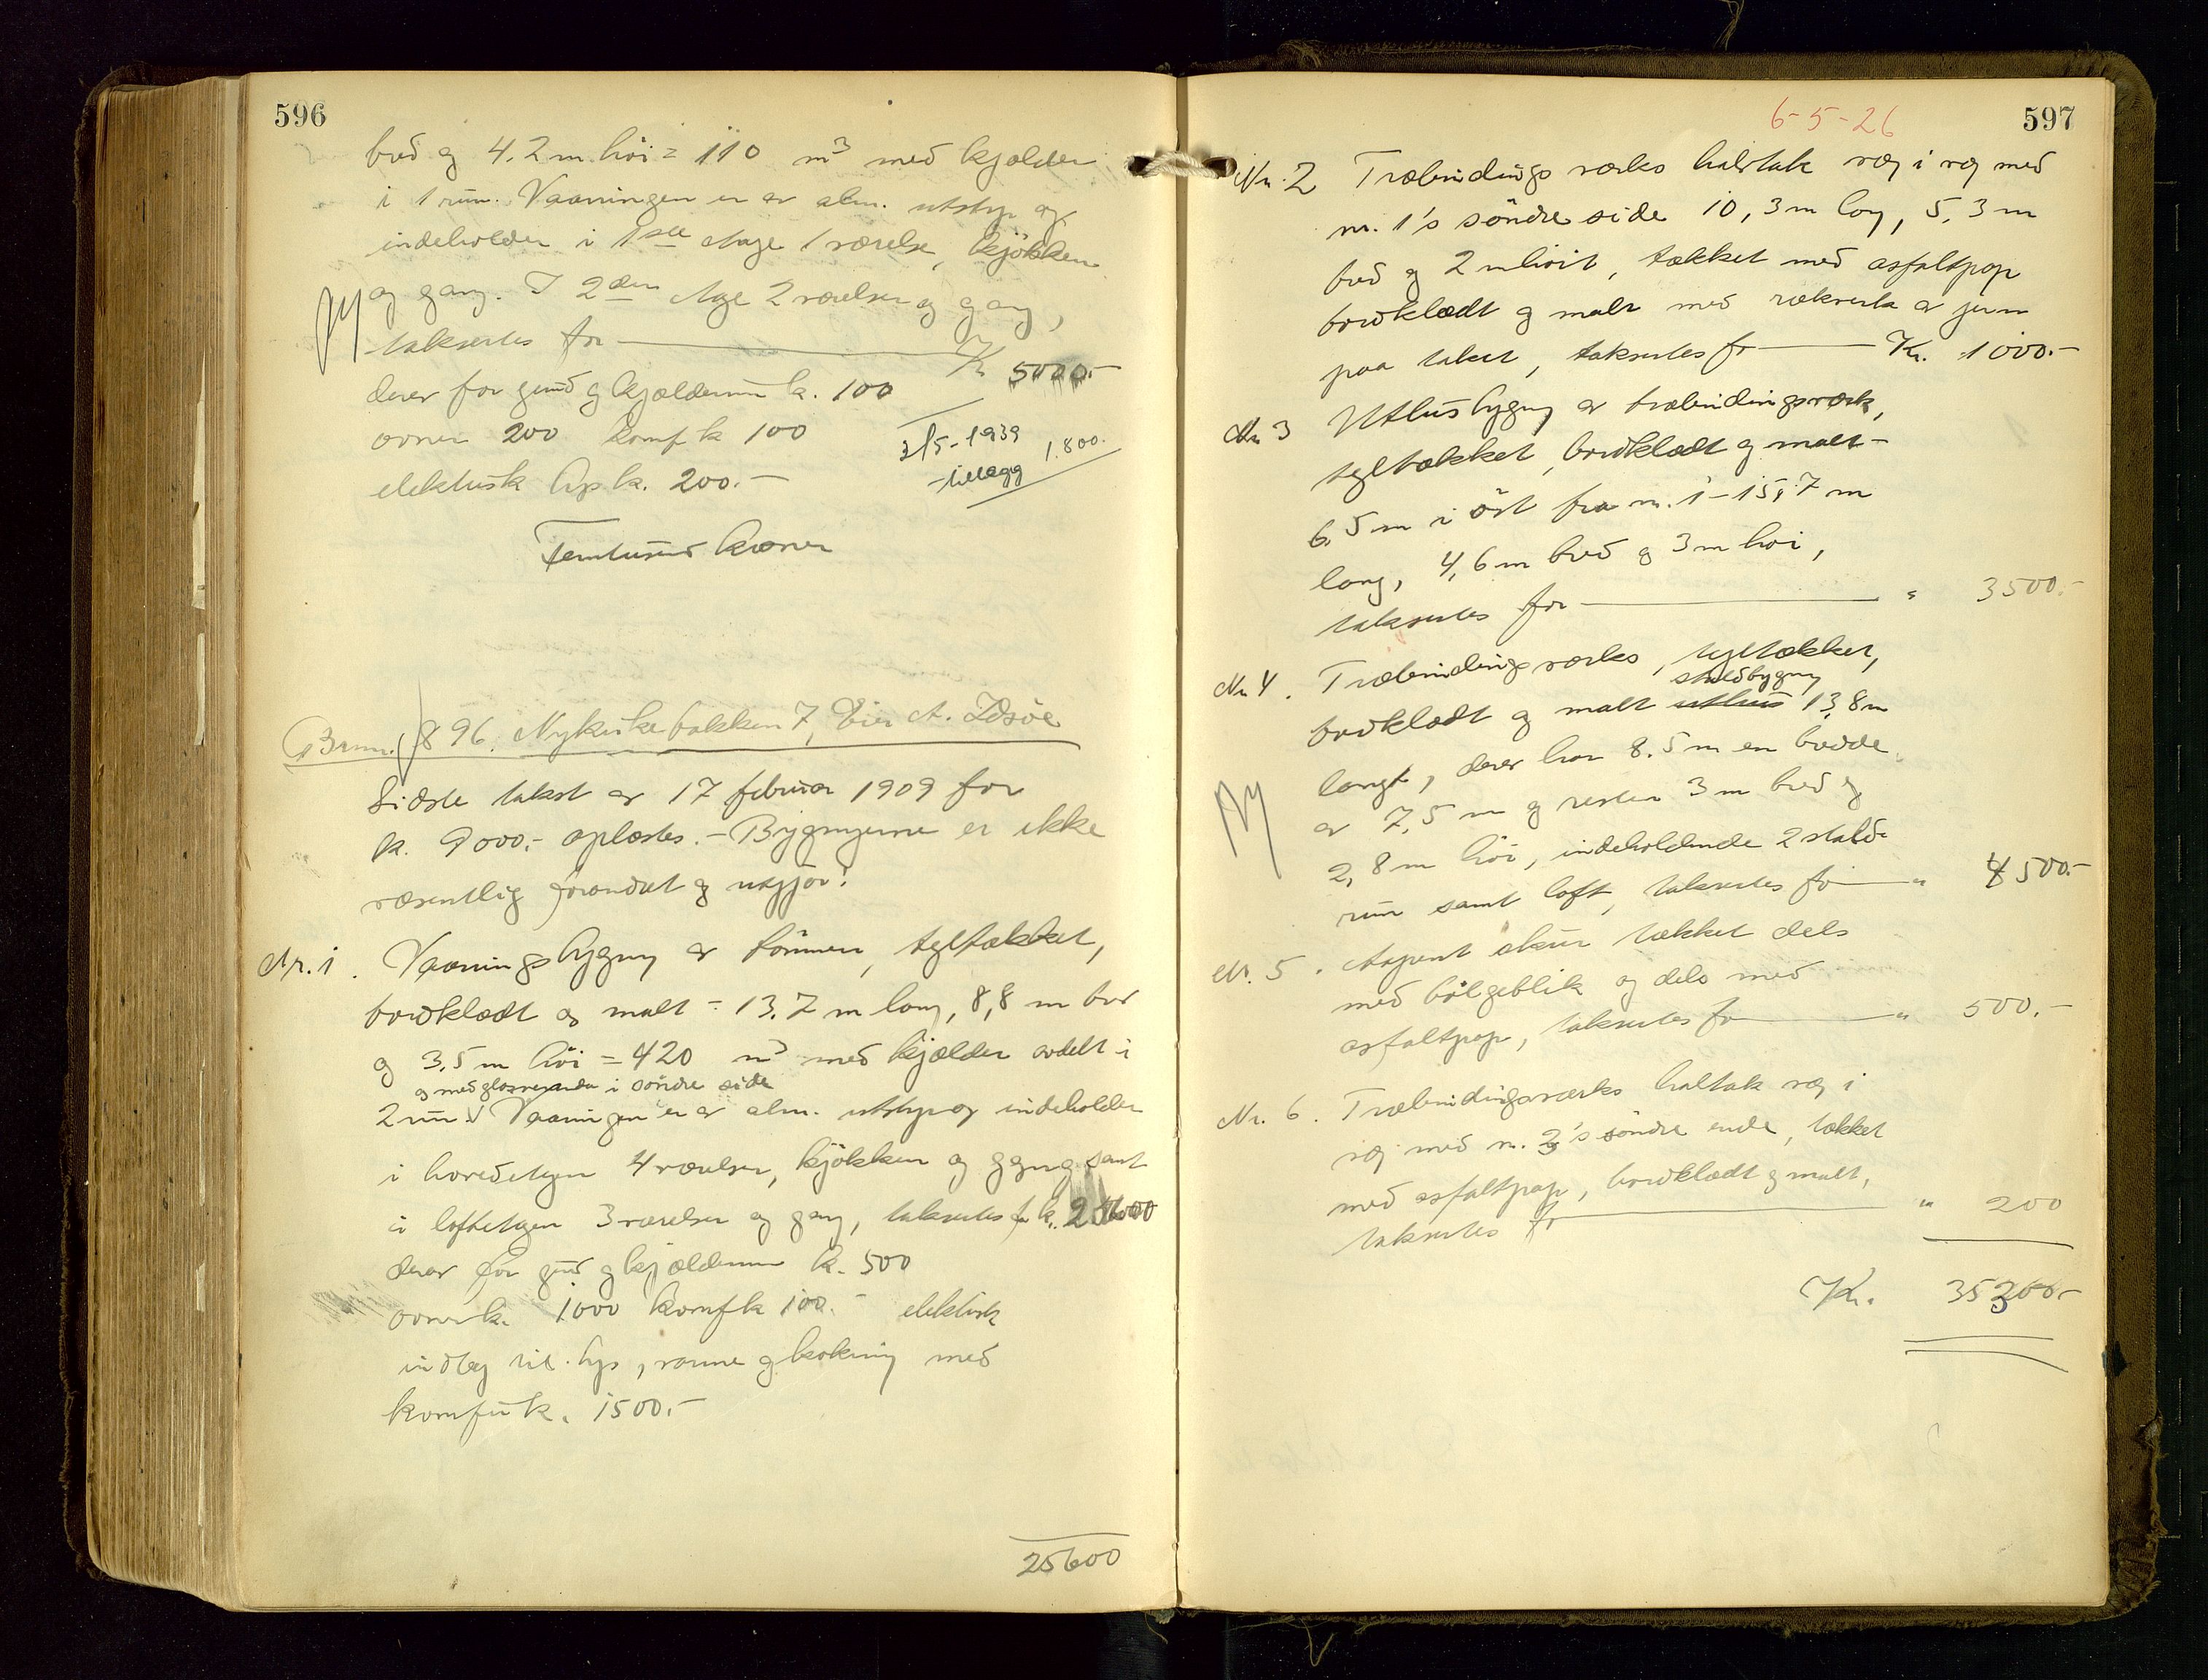 596
bred og 4.2 m. höi = 110 m³ med kjælder
i 1 rum. Vaaningen er av alm. utstyr og
indeholder i 1ste etage 1 værelse, kjökken
og gang. I 2den etage 2 værelser og gang,
taksertes for — Kr. 5000.-
derav for grund og kjælderrum k. 100
ovner 200 komf. k 100
elektrisk lys k. 200.-
3/5-1939
tillegg 1.800.
Femtusind kroner
Brnr. 896. Nykirkebakken 7, Eier A. Idsöe
Sidste takst av 17 februar 1909 for
k. 9000.- oplæstes. - Bygningerne er ikke
væsentlig forandret og utgjör:
Nr. 1. Vaaningsbygning av tömmer, tegltækket,
bordklædt og malt = 13.7 m lang, 8,8 m bred
og 3,5 m höi = 420 m³ med kjælder avdelt i
og med glasveranda i söndre side
2 rum. √ Vaaningen er av alm. utstyr og indeholder
i hovedetagen 4 værelser, kjökken og gang samt
i loftetagen 3 værelser og gang, taksertes for k. 25600
derav for grund og kjælderrum k. 500
ovner k. 1000 komf k 100.- elektrisk
indlæg til lys, varme og kokning med
komfur k. 1500.-
25600
6-5-26
597
Nr. 2 Træbindingsværks halvtak væg i væg med
nr. 1's söndre side 10,3 m lang, 5,3 m
bred og 2 m höit, tækket med asfaltpap
bordklædt og malt med rækverk av jern
paa taket, taksertes for — Kr. 1000.-
Nr 3 Uthusbygning av træbindingsværk,
tegltækket, bordklædt og malt -
6,5 m i öst fra nr. 1 - 15,7 m
lang, 4,6 m bred og 3 m höi,
taksertes for — " 3500.-
Nr 4. Træbindingsværks, tegltækket,
staldbygning
bordklædt og malt uthus 13,8 m
langt, derav har 8.5 m en bredde
av 7,5 m og resten 3 m bred og
2,8 m höi, indeholdende 2 stald-
rum samt loft, taksertes for — " 4500.-
Nr. 5. Aapent skur tækket dels
med bölgeblik og dels med
asfaltpap, taksertes for — " 500.-
Nr. 6. Træbindingsværks haltak væg i
væg med nr. 3's söndre ende, tækket
med asfaltpap, bordklædt og malt,
taksertes for — " 200
Kr. 35300.-